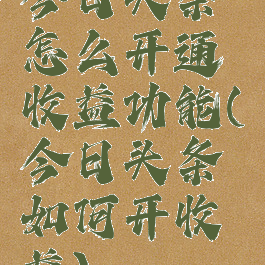 今日头条
怎么开通
收益功能(
今日头条
如何开收
益)